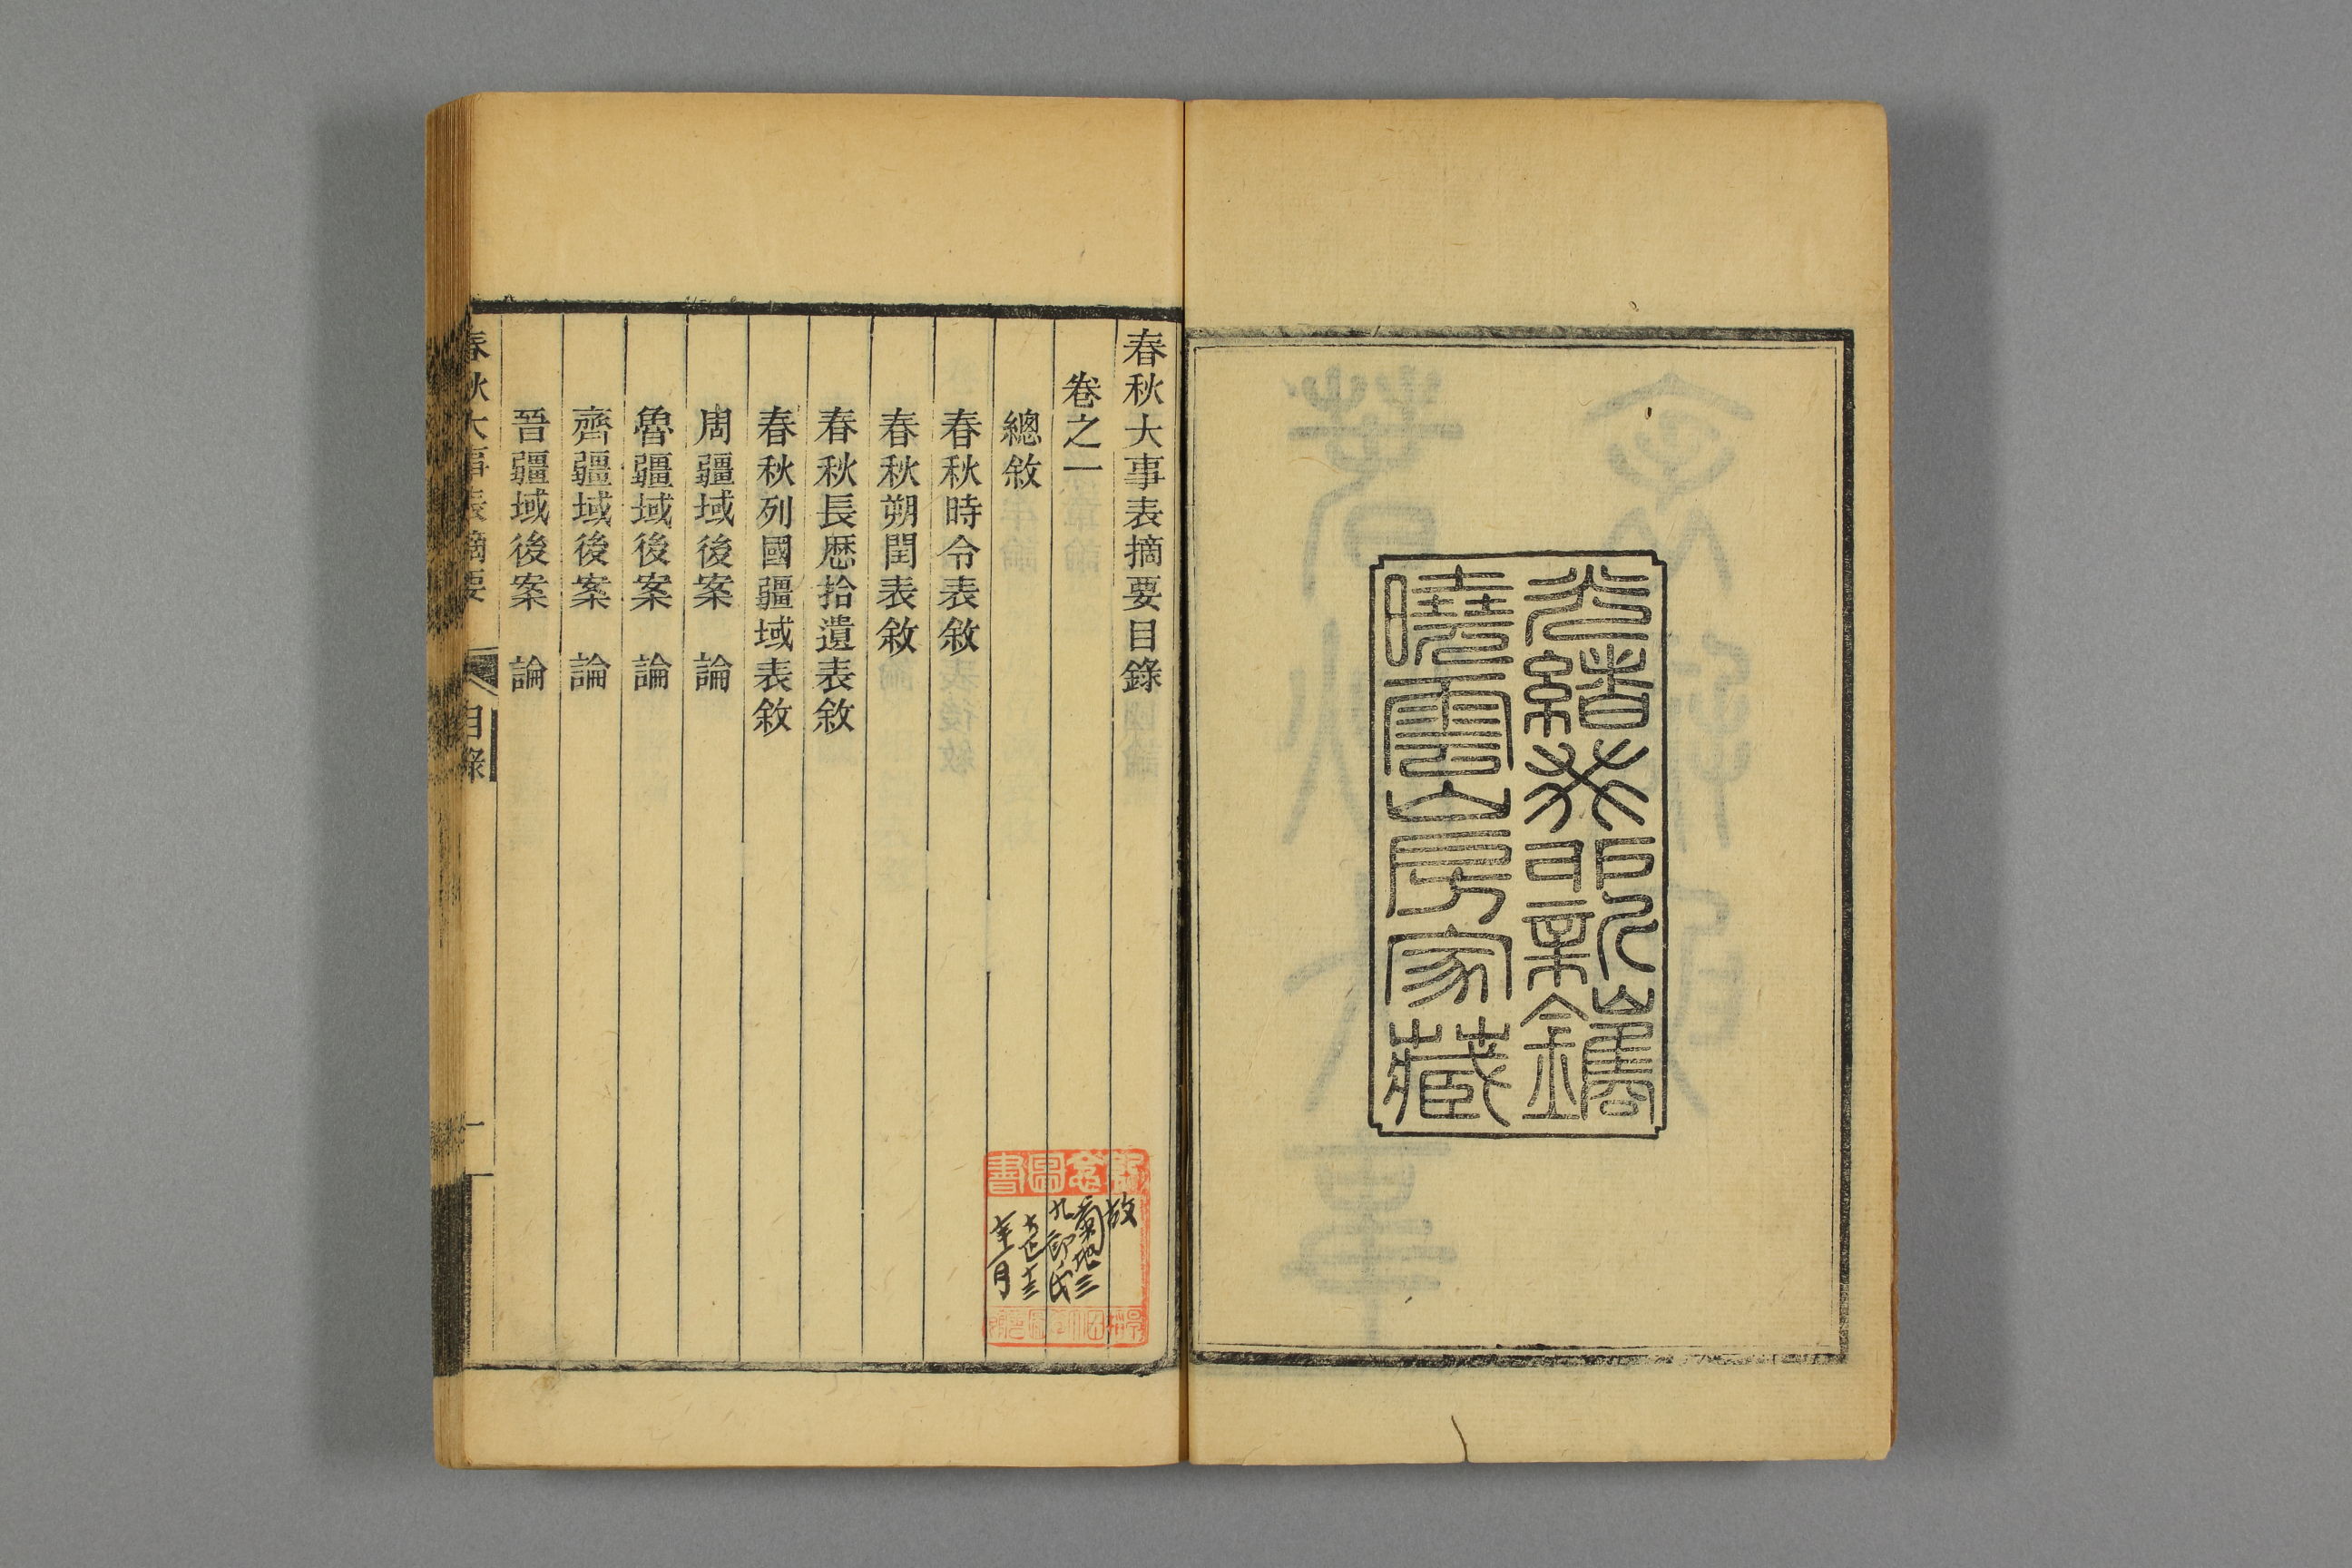 光緒癸卯新鐫
曉雲山房家藏
春秋大事表摘要目錄
卷之一
總敘
春秋時令表敘
春秋朔閏表敘
春秋長厯拾遺表敘
春秋列國疆域表敘
周疆域後案　論
魯疆域後案　論
齊疆域後案　論
晉疆域後案　論
春秋大事表摘要　目錄　一
記念圖書
故
菊地三
九郎氏
大正十三
年一月